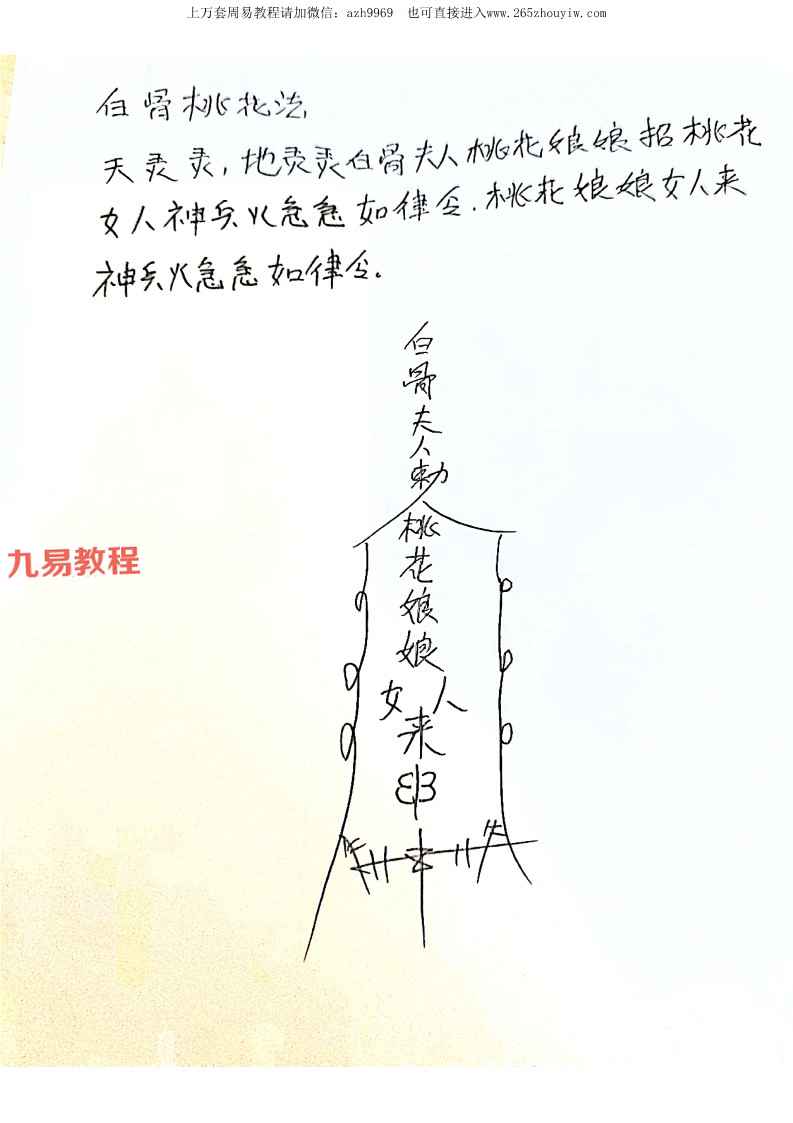 上万套周易教程请加微信：azh9969 也可直接进入www.265zhouyiw.com
白骨桃花法，
天灵灵，地灵灵白骨夫人桃花娘娘招桃花
女人神兵火急急如律令．桃花娘娘女人来
神兵火急急如律令．
白骨夫人勅
九易教程
桃花娘娘
女人
来